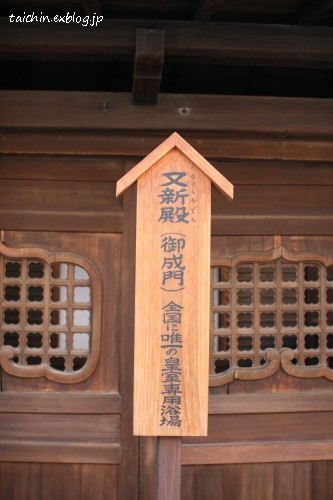 taichin.exblog.jp
又新殿
ゆうしんでん
(御成門)
全国に唯一の皇室専用浴場